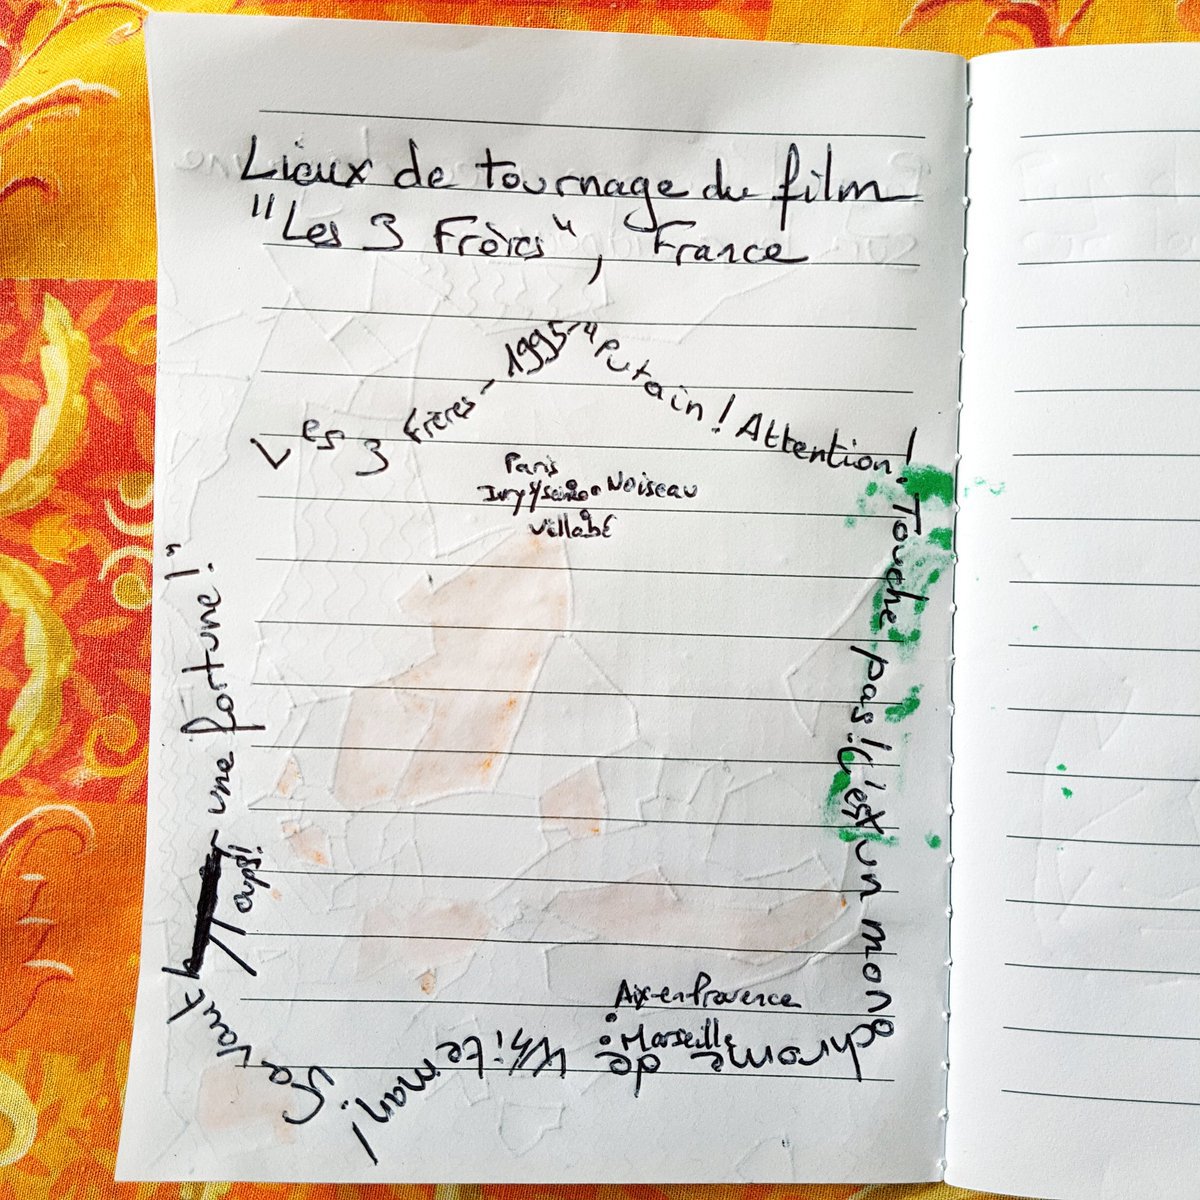 Lieux de tournage du film
"Les 3 Frères", France
Les 3 Frères - 1995 - "Putain ! Attention ! Touche pas ! C'est un monochrome de Whiteman ! Ça vaut une fortune !"
oups!
Paris
Ivry s/seine Noiseau
Villabé
Aix-en-Provence
Marseille